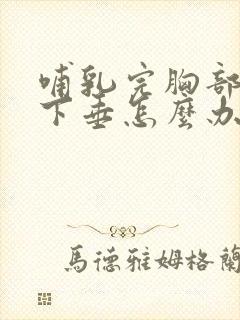 哺乳完胸部
下垂怎麼办
馬德雅姆格蘭